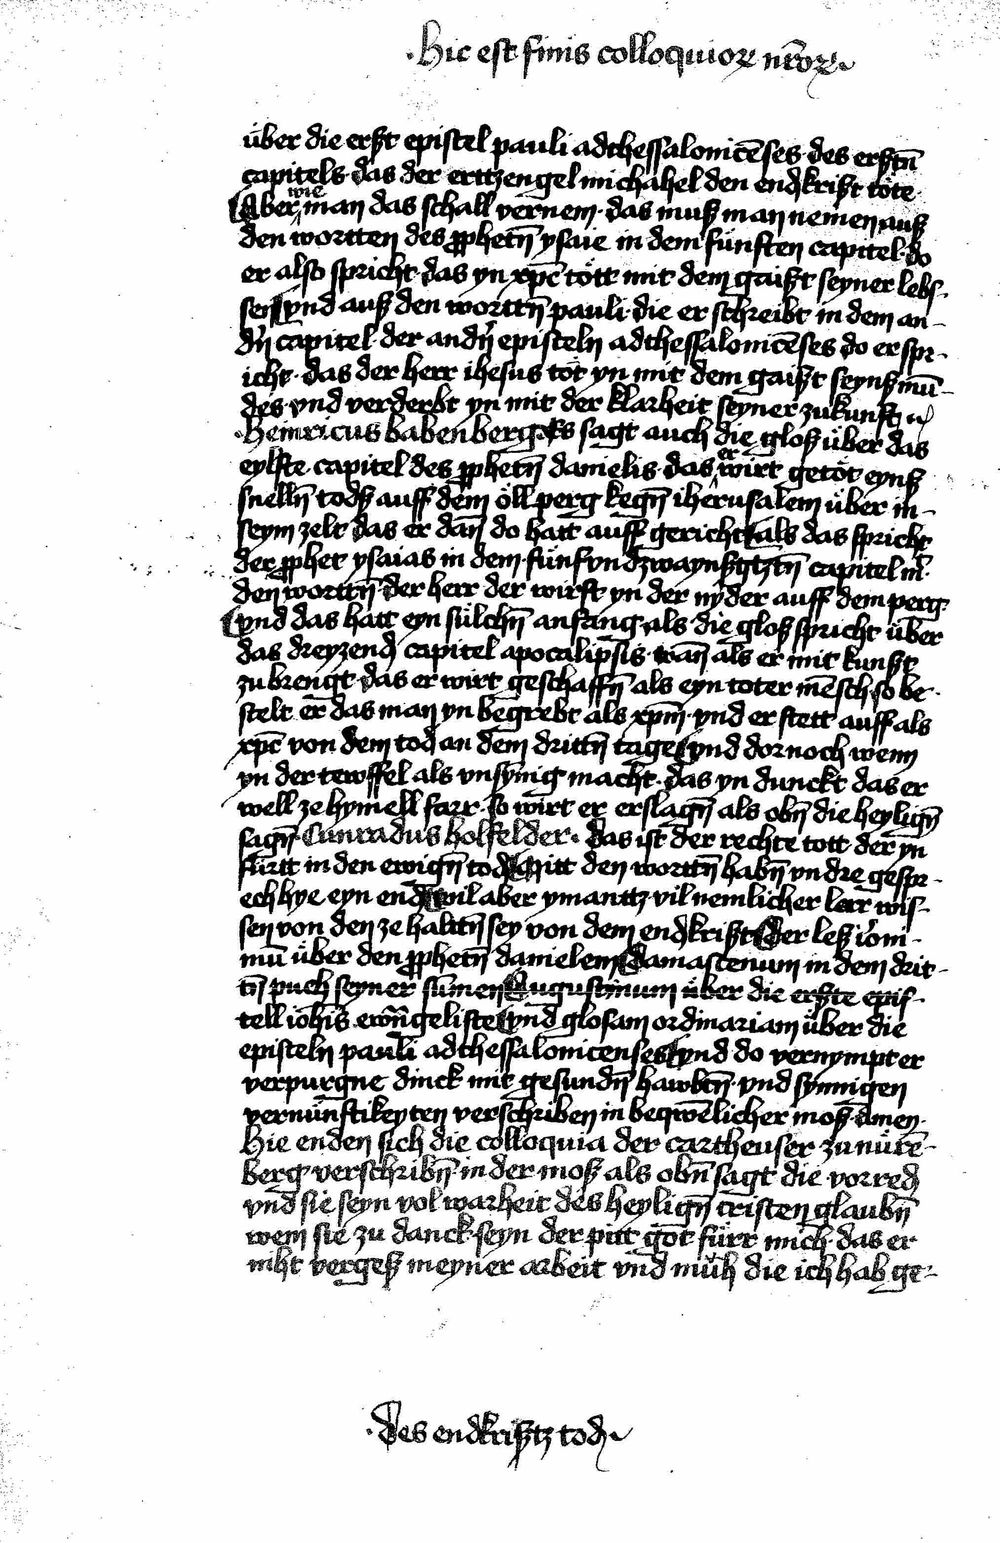 ·Hic est finis colloquioꝝ nr̄oꝝ·
ůber die erßt epistel pauli adthessalonicēses des erßtn̄
capitels das der erttzengel michahel den endkrißt tőte
Aber wie man das schall vernem · das muß man nemen auß
den wortten des ꝓphetn̄ ysaie in dem fůnften capitel · do
er also spricht · das yn xp̄c tőtt mit dem gaißt seyner lebs-
sen vnd auß den worttn̄ pauli · die er schreibt in dem an-
dn̄ capitel der andn̄ episteln adthessalonicēses do er spr-
icht · das der herr ihesus tőt yn mit dem gaißt seynß mū-
des · vnd verderbt yn mit der klarheit seyner zukunft
·Heinricus babenberg· Es sagt auch die gloß ůber das
eylfte capitel des ꝓphetn̄ danielis · das er wirt getőt eynß
snelln̄ todß auff dem őllperg kegn̄ iherusalem ůber in-
seym zelt das er dan̄ do hatt auff gericht als das spricht
der ꝓphet ysaias in dem fůnfvndzwaynßgtztn̄ capitel in
den worttn̄ der herr der wirft yn der nyder auff dem perg
vnd das hatt eyn sůlchn̄ anfang als die gloß spricht ůber
das dreyzend capitel apocalipsis · wan̄ als er mit kunßt
zu brengt das er wirt geschaffn̄ als eyn toter mēsch so be-
stelt er das man yn begrebt als xpm̄ · vnd er stett auff als
xp̄c von dem tod an dem drittn̄ tage vnd dornoch wenn
yn der tewffel als vnsynnig macht · das yn dunckt das er
well ze hymell farr · so wirt er erslagn̄ als obn̄ die heylign̄
sagn̄ · Cunradus holfelder · das ist der rechte tott der yn
fůrtt in den ewign̄ tod Mitt den wortten habn̄ vndre gespr-
ech hye eyn end wil aber ymanttz vil nemlicher lerr wis-
sen von den ze halttn̄ sey von dem endkrißt der leß iēoni-
mū ůber den ꝓphetn̄ danielem damascenum in dem drit-
tn̄ puch seyner sūmen Augustinum ůber die erßte epis-
tell ioh̄is ewāngeliste vnd glosam ordinariam ůber die
episteln pauli adthessalonicenses vnd do vernympt er
verpurgne dinck mit gesundn̄ hawbtn̄ · vnd synnigen
vernůnftikeyten verschriben in beqwēlicher moß · amen ·
Hie enden sich die colloquia der cartheuser zu nůrē-
berg · verschribn̄ in der moß als obn̄ sagt die vorred
vnd sie seyn vol warheit des heylign̄ cristen glaubn̄
wem sie zu danck seyn der pitt got fůrr mich · das er
niht vergeß meyner arbeit vnd můh die ich hab ge-
·Des endkrißtz tod·